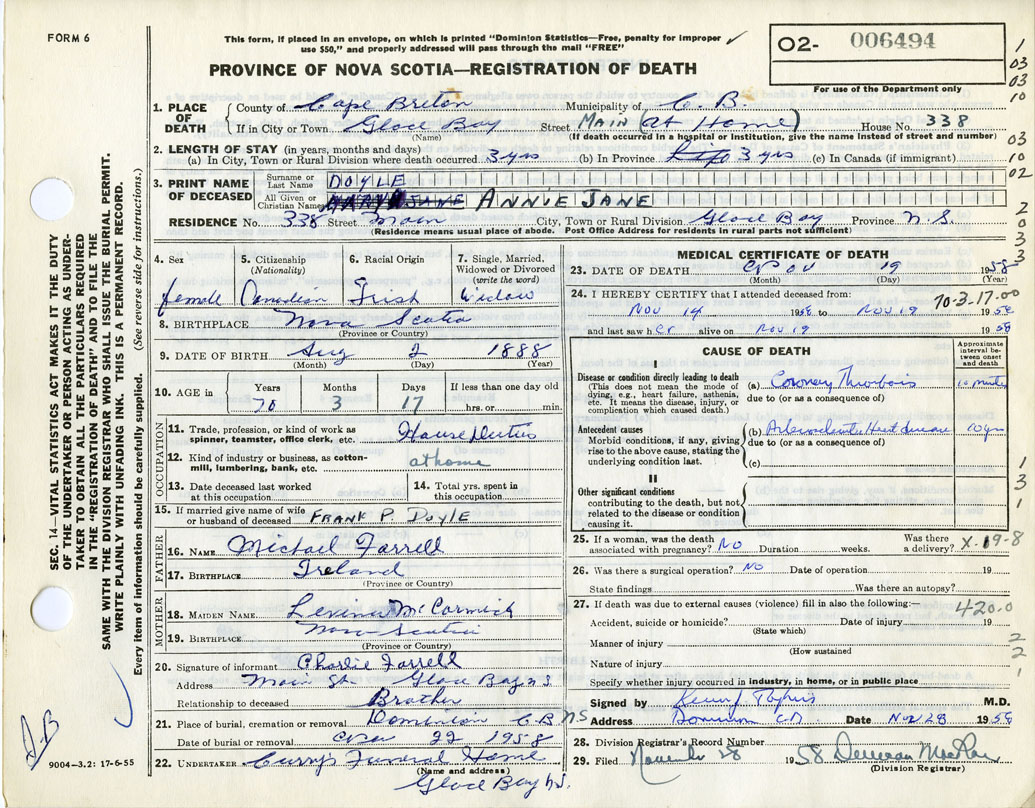 FORM 6
This form, if placed in an envelope, on which is printed "Dominion Statistics—Free, penalty for improper
use $50," and properly addressed will pass through the mail "FREE"
O2- 006494
For use of the Department only
PROVINCE OF NOVA SCOTIA—REGISTRATION OF DEATH
1. PLACE OF DEATH
County of Cape Breton Municipality of C. B.
If in City or Town Glace Bay Street MAIN (At Home) House No. 338
(Name) (If death occurred in a hospital or institution, give the name instead of street and number)
2. LENGTH OF STAY (in years, months and days)
(a) In City, Town or Rural Division where death occurred 3 yrs (b) In Province Life 3 yrs (c) In Canada (if immigrant)
3. PRINT NAME OF DECEASED
Surname or Last Name DOYLE
All Given or Christian Names MARY JANE ANNIE JANE
RESIDENCE No. 338 Street Main City, Town or Rural Division Glace Bay Province N.S.
(Residence means usual place of abode. Post Office Address for residents in rural parts not sufficient)
4. Sex 5. Citizenship (Nationality) 6. Racial Origin 7. Single, Married, Widowed or Divorced (write the word)
female Canadian Irish Widow
8. BIRTHPLACE Nova Scotia
(Province or Country)
9. DATE OF BIRTH Aug 2 1888
(Month) (Day) (Year)
10. AGE in Years Months Days If less than one day old
70 3 17 hrs. or min.
OCCUPATION
11. Trade, profession or kind of work as spinner, teamster, office clerk, etc. House Duties
12. Kind of industry or business, as cotton-mill, lumbering, bank, etc. at home
13. Date deceased last worked at this occupation
14. Total yrs. spent in this occupation
15. If married give name of wife or husband of deceased FRANK P. DOYLE
FATHER
16. NAME Michael Farrell
17. BIRTHPLACE Ireland
(Province or Country)
MOTHER
18. MAIDEN NAME McCormick
19. BIRTHPLACE Nova Scotia
(Province or Country)
20. Signature of informant Charlie Farrell
Address Main St. Glace Bay N.S.
Relationship to deceased Brother
21. Place of burial, cremation or removal Dominion C.B. N.S
Date of burial or removal 22 1958
22. UNDERTAKER Curry's Funeral Home
(Name and address)
Glace Bay N.S.
MEDICAL CERTIFICATE OF DEATH
23. DATE OF DEATH Nov 19 1958
(Month) (Day) (Year)
24. I HEREBY CERTIFY that I attended deceased from:
70-3.17.00
Nov 14 1958 to Nov 19 1958
and last saw her alive on Nov 19 1958
CAUSE OF DEATH
Approximate interval between onset and death
I
Disease or condition directly leading to death
(This does not mean the mode of dying, e.g., heart failure, asthenia, etc. It means the disease, injury, or complication which caused death.)
(a) Coronary Thrombosis
due to (or as a consequence of)
Antecedent causes
Morbid conditions, if any, giving rise to the above cause, stating the underlying condition last.
(b) Arteriosclerotic Heart disease 10 yrs
due to (or as a consequence of)
(c)
II
Other significant conditions
contributing to the death, but not related to the disease or condition causing it.
25. If a woman, was the death associated with pregnancy? NO Duration weeks. Was there a delivery? X.19-8
26. Was there a surgical operation? NO Date of operation 19
State findings Was there an autopsy?
27. If death was due to external causes (violence) fill in also the following:—
420.0
Accident, suicide or homicide? Date of injury 19
(State which)
Manner of injury
(How sustained
Nature of injury
Specify whether injury occurred in industry, in home, or in public place
Signed by M.D.
Address Dominion C.B. Date Nov 28 1958
28. Division Registrar's Record Number
29. Filed November 28 1958
(Division Registrar)
SEC. 14—VITAL STATISTICS ACT MAKES IT THE DUTY
OF THE UNDERTAKER OR PERSON ACTING AS UNDER-
TAKER TO OBTAIN ALL THE PARTICULARS REQUIRED
IN THE "REGISTRATION OF DEATH" AND TO FILE THE
SAME WITH THE DIVISION REGISTRAR WHO SHALL ISSUE THE BURIAL PERMIT.
WRITE PLAINLY WITH UNFADING INK. THIS IS A PERMANENT RECORD.
Every item of information should be carefully supplied. (See reverse side for instructions.)
9004—3.2: 17-6-55
1
03
03
10
03
10
02
2
0
3
3
1
3
1
2
2
1